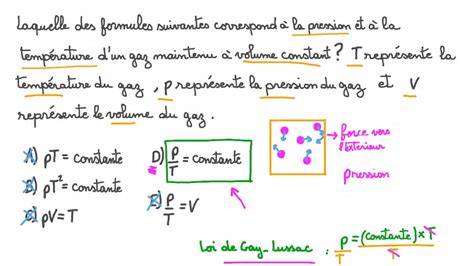 Laquelle des formules suivantes correspond à la pression et à la
température d'un gaz maintenu à volume constant ? T représente la
température du gaz , p représente la pression du gaz et V
représente le volume du gaz .
A) pT = constante
B) pT² = constante
C) pV = T
D) p/T = constante
E) p/T = V
force vers
l'extérieur
pression
Loi de Gay-Lussac : p/T = (constante) × T/T